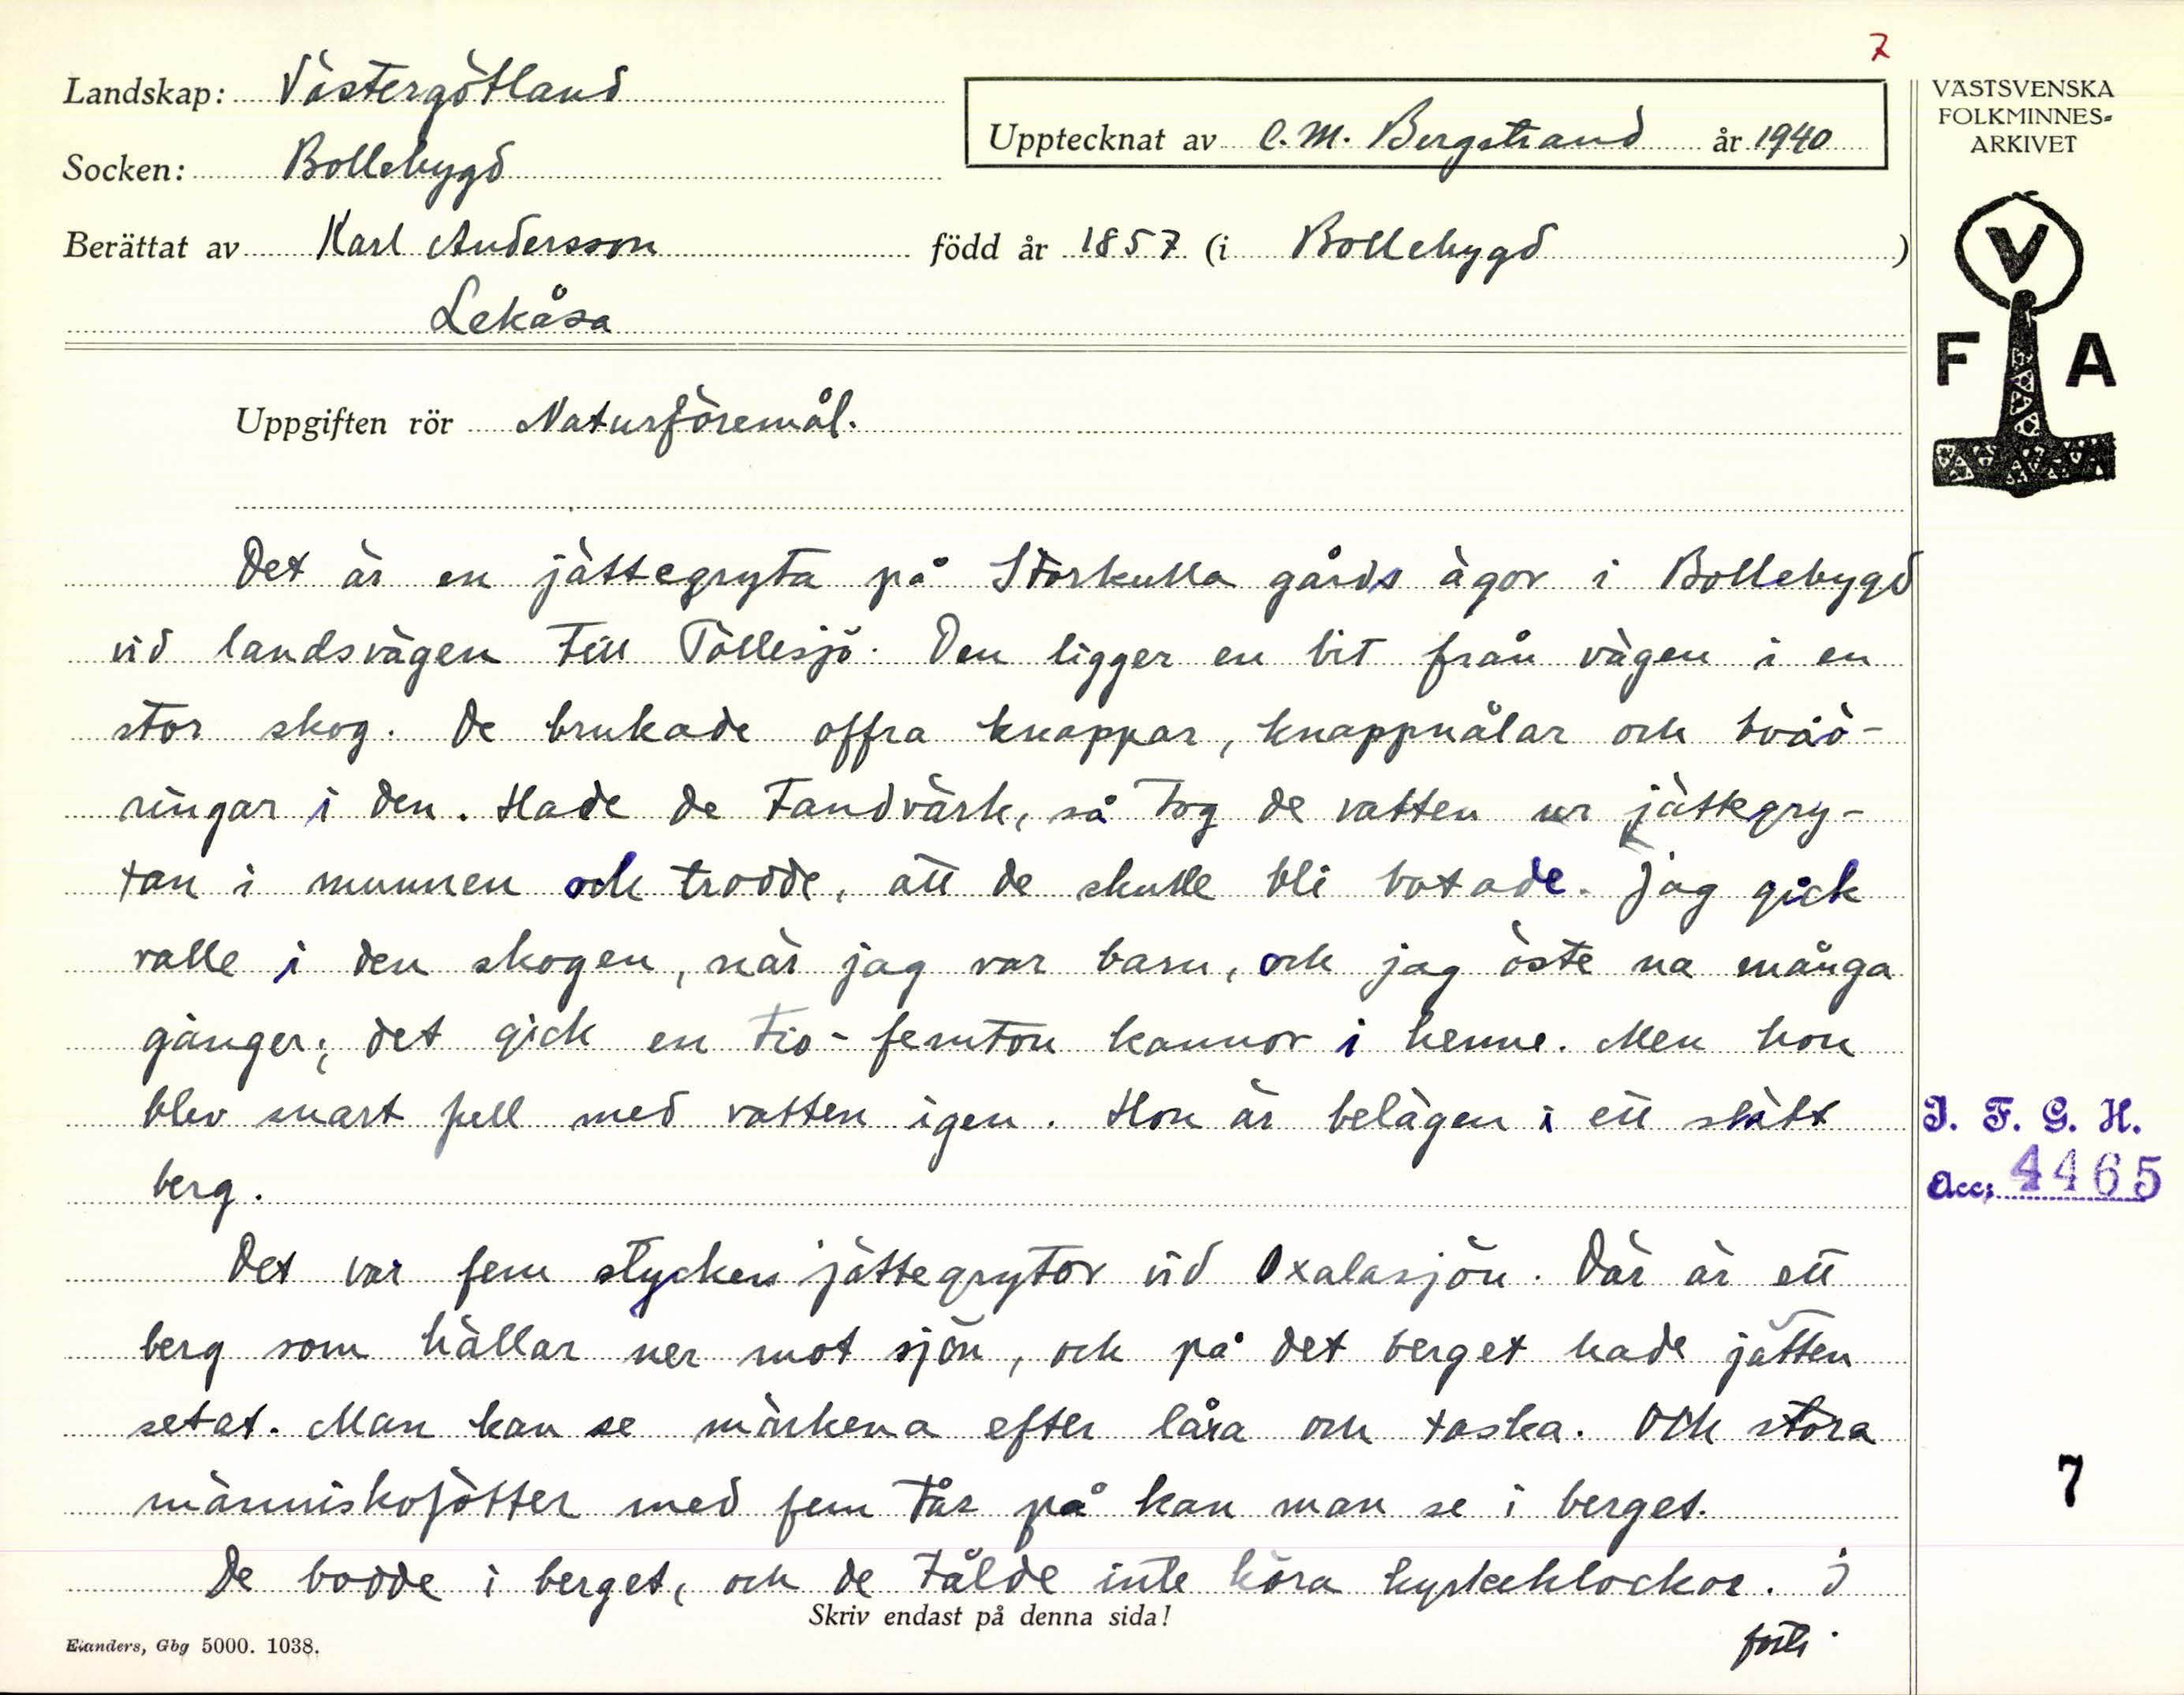 7
Landskap: Västergötland
Upptecknat av C. M. Bergstrand år 1940
Socken: Bollebygd
Berättat av Karl Andersson född år 1857 (i Bollebygd)
Lekåsa
VÄSTSVENSKA
FOLKMINNES=
ARKIVET
V
F A
Uppgiften rör Naturföremål.
Det är en jättegryta på Storkulla gårds ägor i Bollebygd
vid landsvägen till Töllesjö. Den ligger en bit från vägen i en
stor skog. De brukade offra knappar, knappnålar och tvåö-
ringar i den. Hade de tandvärk, så tog de vatten ur jättegry-
tan i munnen och trodde, att de skulle bli botade. Jag gick
valle i den skogen, när jag var barn, och jag öste na många
gånger; det gick en tio-femton kannor i henne. Men hon
blev snart full med vatten igen. Hon är belägen i ett slätt
berg.
Det var fem stycken jättegrytor vid Oxalasjön. Där är ett
berg som hällar ner mot sjön, och på det berget hade jätten
setat. Man kan se märkena efter låra och taska. Och stora
människofötter med fem tår på kan man se i berget.
De bodde i berget, och de tålde inte höra kyrkeklockor. I
Skriv endast på denna sida!
forts.
Elanders, Gbg 5000. 1038.
I. F. G. H.
Acc: 4465
7